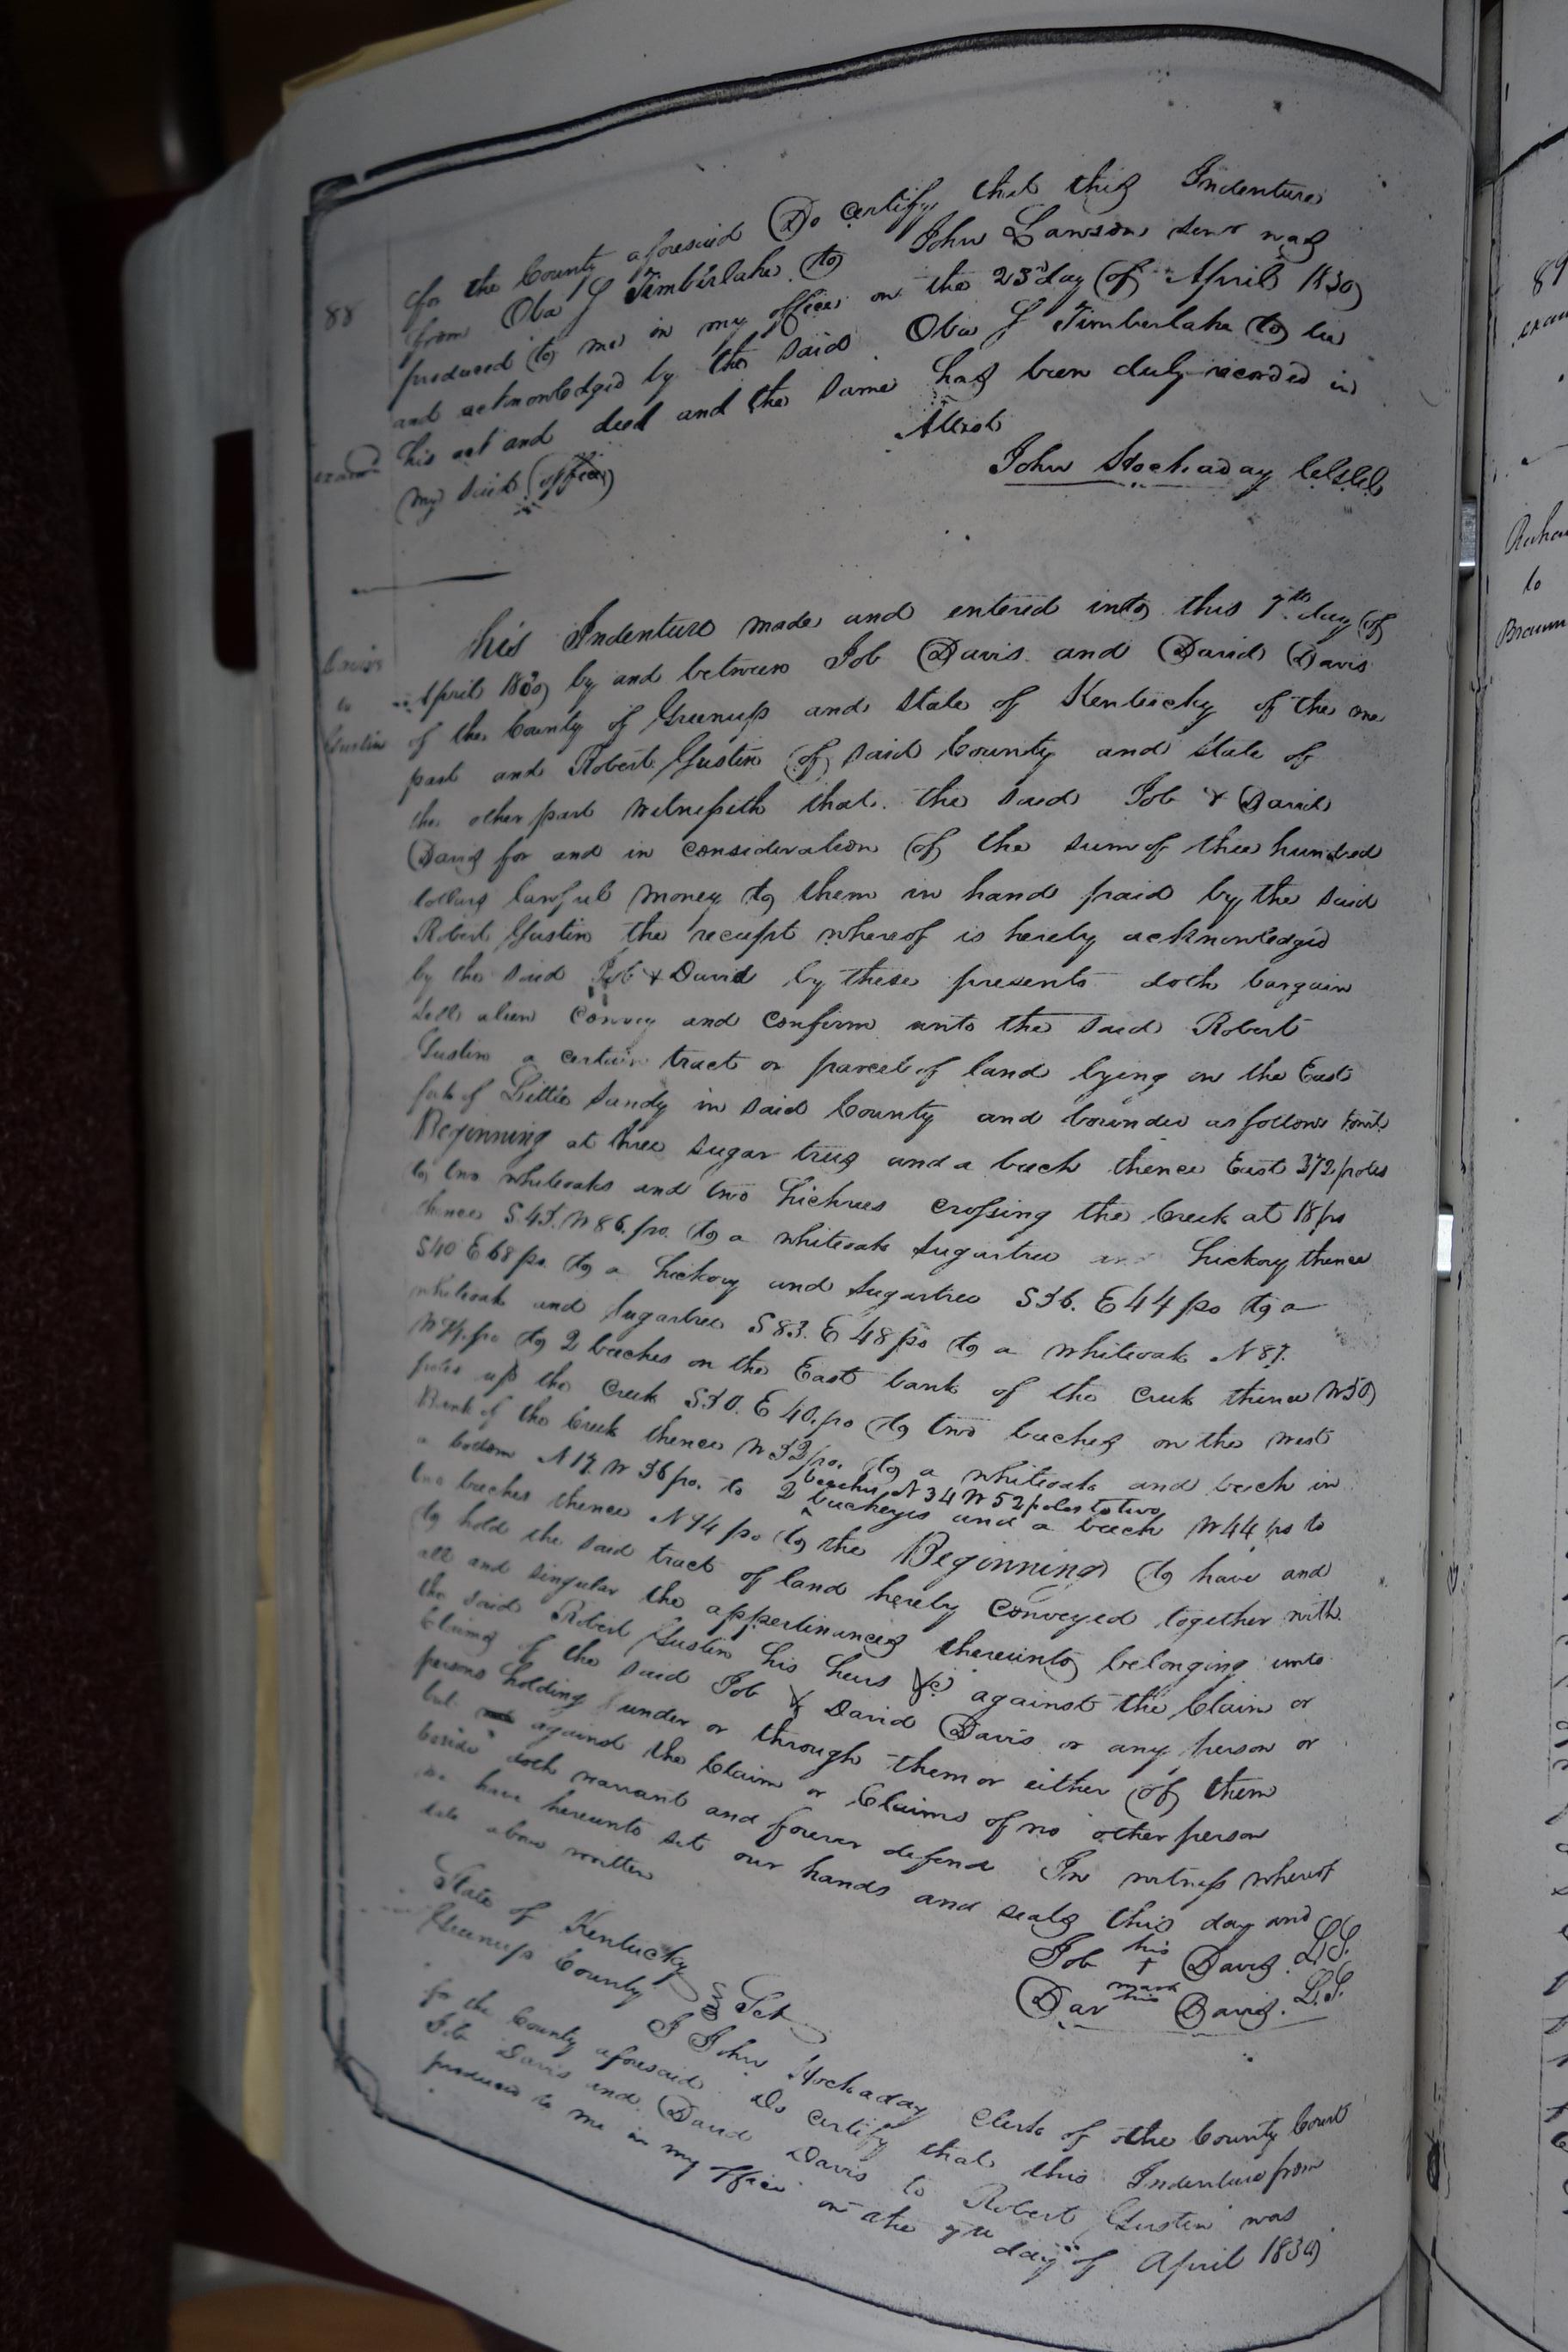 88
for the County aforesaid Do certify that this Indenture
from Oba G Timberlake to John Lawson senr was
produced to me in my office on the 23rd day of April 1830
and acknowledged by the said Oba G Timberlake to be
his act and deed and the same has been duly recorded in
my said office
Attest
John Hockaday
Davis
to
Gustin
This Indenture made and entered into this 7th day of
April 1830 by and between Job Davis and David Davis
of the County of Greenup and State of Kentucky of the one
part and Robert Gustin of said County and State of
the other part Witnesseth that the said Job & David
Davis for and in consideration of the sum of three hundred
dollars lawful money to them in hand paid by the said
Robert Gustin the receipt whereof is hereby acknowledged
by the said Job & David by these presents doth bargain
Sell alien Convey and Confirm unto the said Robert
Gustin a certain tract or parcel of land lying on the East
fork of Little Sandy in said County and bounded as follows towit
Beginning at three sugar trees and a beech thence East 372 poles
to two whiteoaks and two hickrees crossing the Creek at 18 po
thence S.45.W 86.po. to a whiteoak Sugartree and hickory thence
S40 E 68 po. to a hickory and Sugartree S36. E 44 po to a
whiteoak and Sugartree S83. E 48 po to a whiteoak N 87.
W 74.po to 2 beeches on the East bank of the Creek thence W 50
poles up the Creek S50. E 40.po to two beeches on the West
Bank of the Creek thence W 52 po. to a whiteoak and beech in
a bottom N 17. W 36 po. to 2 beeches N 34 W 52 poles to two
buckeyes and a beech W 44 po to
two beeches thence N 74 po to the Beginning to have and
to hold the said tract of land hereby Conveyed together with
all and singular the appertinances thereunto belonging unto
the said Robert Gustin his heirs &c against the Claim or
Claims of the said Job & David Davis or any person or
persons holding under or through them or either of them
but against the Claim or Claims of no other person
beside doth warrant and forever defend In witness whereof
we have hereunto set our hands and seals this day and
date above written
Job his + mark Davis. L.S.
Dav his Davis. L.S.
State of Kentucky
Greenup County Sct
I John Hockaday Clerk of the County Court
for the County aforesaid Do certify that this Indenture from
Job Davis and David Davis to Robert Gustin was
produced to me in my office on the 7th day of April 1830